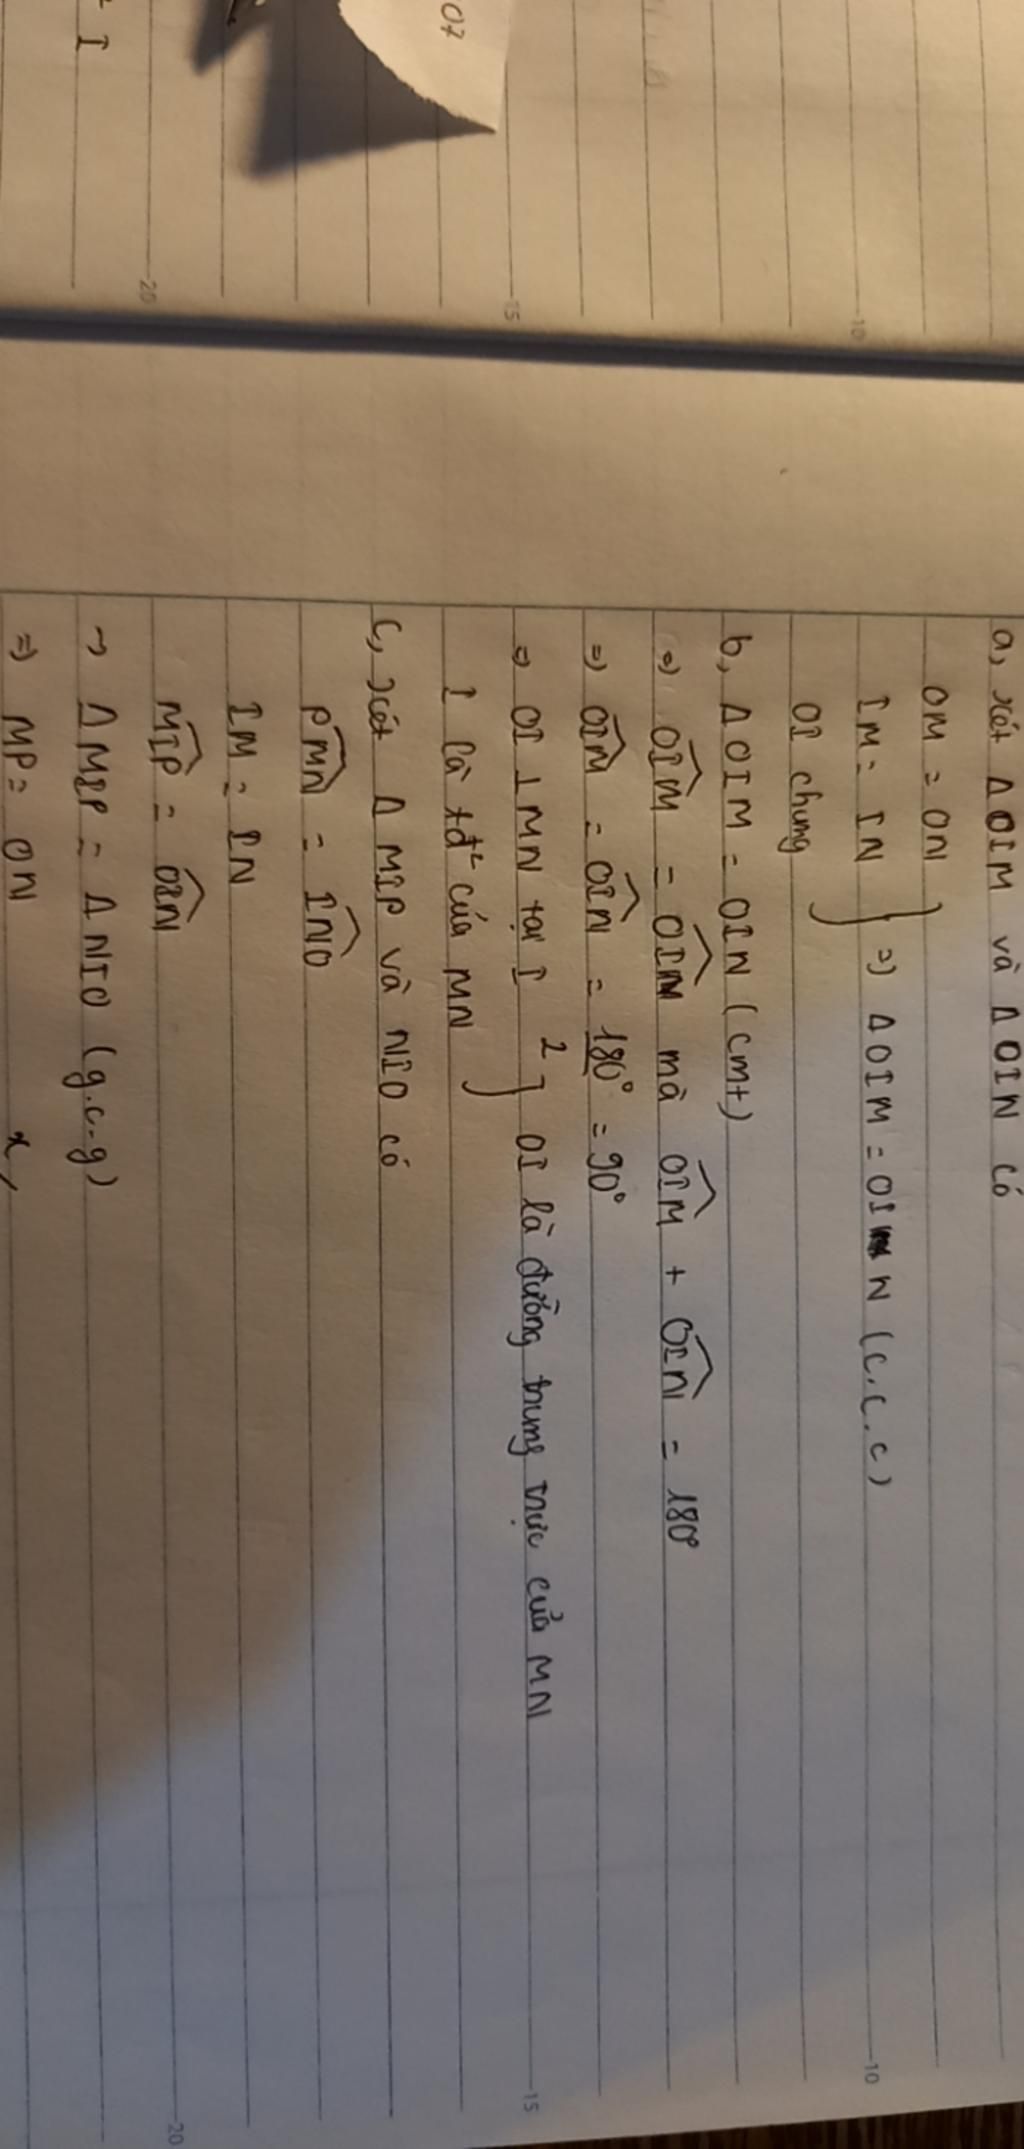 07
² I
a, xét Δ OIM và Δ OIN có
OM = ON
IM = IN } => Δ OIM = OIN (c.c.c)
OI chung
b, Δ OIM = OIN (cmt)
=> OIM = OIN mà OIM + OIN = 180°
=> OIM = OIN = 180°/2 = 90°
=> OI ⊥ MN tại I } OI là đường trung trực của MN
I là tđ² của MN
c, xét Δ MIP và NIO có
PMN = INO
IM = IN
MIP = OIN
→ Δ MIP = Δ NIO (g.c.g)
=> MP = ON
15
20
10
10
15
20